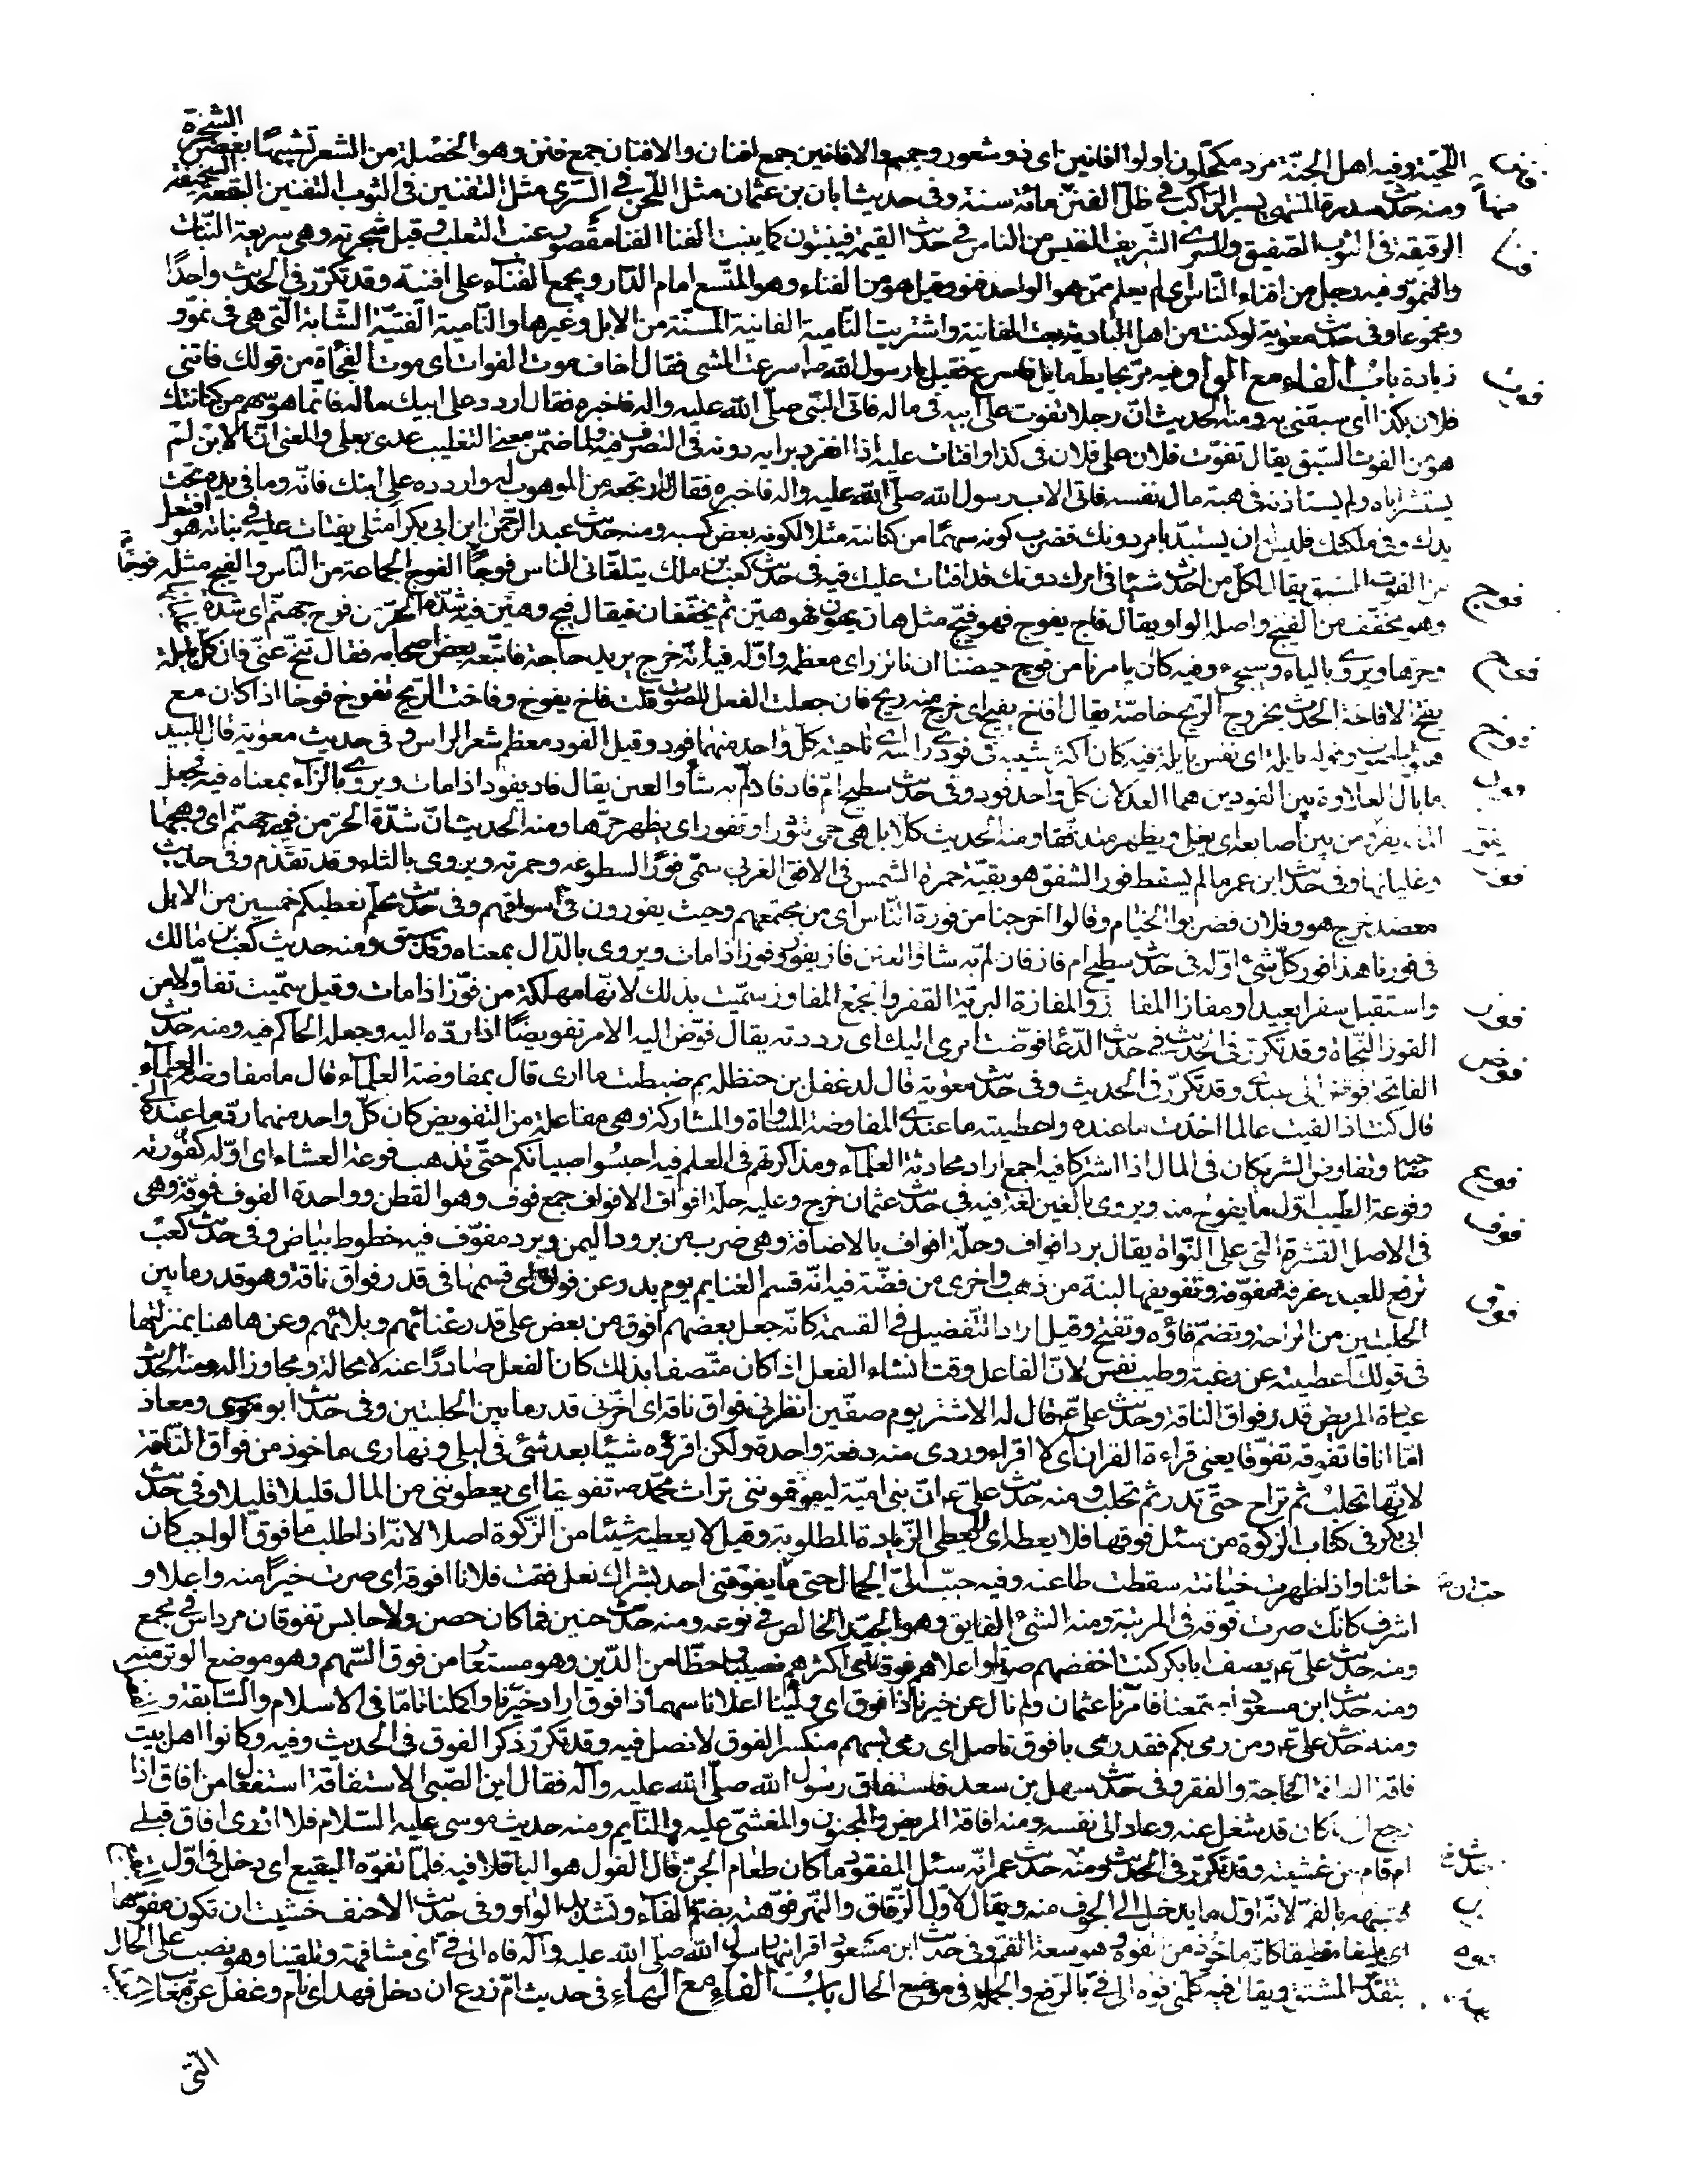 اللحية وفيه اهل الجنة مرد مكحلون اولوا افانين اى ذو شعور وجمم والافانين جمع افنان والافنان جمع فنن وهو الخصلة من الشعر تشبيها بغصن الشجرة
ومنه حديث سدرة المنتهى يسير الراكب فى ظل الفنن مائة سنة وفى حديث ابان بن عثمان مثل اللحن فى السرى مثل التفنين فى الثوب التفنين البقعة السخيفة
الرقيقة فى الثوب الصفيق والسرى الشريف النفيس من الناس فى حديث القيمة فينبتون كما ينبت الفنا الفنا مقصور عنب الثعلب وقيل شجرته وهى سريعة النبات
والنمو وفيه رجل من افناء الناس اى لم يعلم ممن هو الواحد فنو وقيل هو من الفناء وهو المتسع امام الدار ويجمع الفناء على افنية وقد تكرر فى الحديث واحدا
ومجموعا وفى حديث معوية لو كنت من اهل البادية بعت الفانية واشتريت النامية الفانية المسنة من الابل وغيرها والنامية الفتية الشابة التى هى فى نمو و
زيادة باب الفاء مع الواو فيه مر بحايط مايل فاسرع فقيل يا رسول الله اسرعت المشى فقال اخاف موت الفوات اى موت الفجأة من قولك فاتنى
فلان بكذا اى سبقنى به ومنه الحديث ان رجلا تفوت على ابيه فى ماله فاتى النبى صلى الله عليه واله فاخبره فقال اردد على ابيك ماله فانما هو سهم من كنانتك
هو من الفوت السبق يقال تفوت فلان على فلان فى كذا وافتات عليه اذا انفرد برايه دونه فى التصرف فيه ولما ضمن معنى التغليب عدى بعلى والمعنى ان الابن لم
يستشر اباه ولم يستاذنه فى هبة مال نفسه فاتى الاب رسول الله صلى الله عليه واله فاخبره فقال ارتجعه من الموهوب له واردده على ابنك فانه وما فى يده تحت
يدك وفى ملكتك فليس له ان يستبد بامر دونك فضرب كونه سهما من كنانته مثلا لكونه بعض كسبه ومنه حديث عبد الرحمن ابن ابى بكر امثلى يفتات عليه فى بناته هو افتعل
من الفوت السبق يقال لكل من احدث شيئا فى امرك دونك قد افتات عليك فيه فى حديث كعب بن ملك يتلقانى الناس فوجا فوجا الفوج الجماعة من الناس والفيج مثله
وهو مخفف من الفيج واصله الواو يقال فاج يفوج فهو فيج مثل هان يهون فهو هين ثم يخففان فيقال فيج وهين فيه شدة الحر من فوح جهنم اى شدة
وحرها ويروى بالياء وسيجىء وفيه كان يامرنا من فوح حيضنا ان نانزر اى معظمه واوله فيه انه خرج يريد حاجة فاتبعه بعض اصحابه فقال تنح عنى فان كل بايلة
يفخ الافاخة الحدث بخروج الريح خاصة يقال افاخ يفيخ اى خرج منه ريح فان جعلت الفعل للصوت قلت فاخ يفوخ وفاخت الريح تفوخ فوخا اذا كان مع
هبوبها صوت وقوله بايلة اى نفس بايلة فيه كان اكثر شيبه فى فودى راسه اى ناحيته كل واحد منهما فود وقيل الفود معظم شعر الراس وفى حديث معوية قال للبيد
ما بال العلاوة بين الفودين هما العدلان كل واحد فود وفى حديث سطيح ام فاد فازلم به شاو العنن يقال فاد يفود اذا مات ويروى بالزاء بمعناه فيه فجعل
الماء يفور من بين اصابعه اى يغلى ويظهر متدفقا ومنه الحديث كلا بل هى حمى تثور او تفور اى يظهر حرها ومنه الحديث ان شدة الحر من فور جهنم اى وهجها
وغليانها وفى حديث ابن عمر ما لم يسقط فور الشفق هو بقية حمرة الشمس فى الافق الغربى سمى فورا لسطوعه وحمرته ويروى بالثاء وقد تقدم وفى حديث
معضد خرج هو وفلان فضربوا الخيام وقالوا اخرجنا من فورة الناس اى من مجتمعهم وحيث يفورون فى اسواقهم وفى حديث محلم نعطيكم خمسين من الابل
فى فورنا هذا فور كل شئ اوله فى حديث سطيح ام فاز فازلم به شاو العنن فاز يفوز وفوز اذا مات ويروى بالدال بمعناه وقد سبق ومنه حديث كعب بن مالك
واستقبل سفرا بعيدا ومفازا المفاز والمفازة البرية القفر والجمع المفاوز سميت بذلك لانها مهلكة من فوز اذا مات وقيل سميت تفاؤلا من
الفوز النجاة وقد تكرر فى الحديث فى حديث الدعا فوضت امرى اليك اى رددته يقال فوض اليه الامر تفويضا اذا رده اليه وجعله الحاكم فيه ومنه حديث
الفاتحة فوض الى عبدى وقد تكرر فى الحديث وفى حديث معوية قال لدغفل بن حنظلة بم ضبطت ما ارى قال بمفاوضة العلماء قال ما مفاوضة العلماء
قال كنت اذا لقيت عالما اخذت ما عنده واعطيته ما عندى المفاوضة المساواة والمشاركة وهى مفاعلة من التفويض كان كل واحد منهما رد ما عنده الى
صاحبه وتفاوض الشريكان فى المال اذا اشتركا فيه اجمع اراد محادثة العلماء ومذاكرتهم فى العلم فيه احبسوا صبيانكم حتى تذهب فوعة العشاء اى اوله كفورته
وفوعة الطيب اول ما يفوح منه ويروى بالغين لغة فيه فى حديث عثمان خرج وعليه حلة افواف الافواف جمع فوف وهو القطن وواحدة الفوف فوفة وهى
فى الاصل القشرة التى على النواة يقال برد افواف وحلة افواف بالاضافة وهى ضرب من برود اليمن وبرد مفوف فيه خطوط بياض وفى حديث كعب
ترفع للعبد غرفة مفوفة وتفويفها لبنة من ذهب واخرى من فضة فيه انه قسم الغنايم يوم بدر عن فواق اى قسمها فى قدر فواق ناقة وهو قدر ما بين
الحلبتين من الراحة وتضم فاؤه وتفتح وقيل اراد التفضيل فى القسمة كانه جعل بعضهم افوق من بعض على قدر غنائهم وبلائهم وعن هاهنا بمنزلتها
فى قولك اعطيته عن رغبة وطيب نفس لان الفاعل وقت انشاء الفعل اذا كان متصفا بذلك كان الفعل صادرا عنه لا محالة ومجاوزا له ومنه الحديث
عيادة المريض قدر فواق الناقة وحديث على ع قال له الاشتر يوم صفين انظرنى فواق ناقة اى اخرنى قدر ما بين الحلبتين وفى حديث ابو موسى ومعاذ
اما انا فاتفوقه تفوقا يعنى قراءة القران اى لا اقراء وردى منه دفعة واحدة ولكن اقرؤه شيئا بعد شئ فى ليلى ونهارى ماخوذ من فواق الناقة
لانها تحلب ثم تراح حتى تدر ثم تحلب ومنه حديث على ع ان بنى امية ليفوقوننى تراث محمد تفويقا اى يعطوننى من المال قليلا قليلا وفى حديث
ابى بكر فى كتاب الزكوة من سئل فوقها فلا يعطه اى لا يعطى الزيادة المطلوبة وقيل لا يعطيه شيئا من الزكوة اصلا لانه اذا طلب ما فوق الواجب كان
خائنا واذا ظهرت خيانته سقطت طاعته وفيه حبب الى الجمال حتى ما يفوقنى احد بشراك نعل فقت فلانا افوقه اى صرت خيرا منه واعلا و
اشرف كانك صرت فوقه فى المرتبة ومنه الشئ الفايق وهو الجيد الخالص فى نوعه ومنه حديث حنين فما كان حصن ولا حابس تفوقان مرداس فى مجمع
ومنه حديث على ع يصف ابا بكر كنت اخفضهم صوتا واعلاهم فوقا اى اكثرهم نصيبا وحظا من الدين وهو مستعار من فوق السهم وهو موضع الوتر منه
ومنه حديث ابن مسعود اجتمعنا فامرنا عثمان ولم نال عن خيرنا ذا فوق اى ولينا اعلانا سهما ذا فوق اراد خيرنا واكملنا تاما فى الاسلام والسابقة و
ومنه حديث على ع ومن رمى بكم فقد رمى بافوق ناصل اى رمى بسهم منكسر الفوق لا نصل فيه وقد تكرر ذكر الفوق فى الحديث وفيه وكانوا اهل بيت
فاقة الفاقة الحاجة والفقر وفى حديث سهل بن سعد فاستفاق رسول الله صلى الله عليه وآله فقال اين الصبى الاستفاقة استفعال من افاق اذا
رجع الى ما كان قد شغل عنه وعاد الى نفسه ومنه افاقة المريض والمجنون والمغشى عليه والنايم ومنه حديث موسى عليه السلام فلا ادرى افاق قبلى
ام قام من غشيته وقد تكرر فى الحديث ومنه حديث عمر انه سئل المفقود ما كان طعام الجن قال الفول هو الباقلا فيه فلما تفوه البقيع اى دخل فى اول
فشبهه بالفم لانه اول ما يدخل الى الجوف منه ويقال لاول الزقاق والنهر فوهته بضم الفاء وتشديد الواو وفى حديث الاحنف خشيت ان تكون مفوها
اى بليغا منطيقا كانه ماخوذ من الفوه وهو سعة الفم وفى حديث ابن مسعود اقرانيها رسول الله صلى الله عليه وآله فاه الى فى اى مشافهة وتلقينا وهو نصب على الحال
بتقدير المشتق ويقال فيه كلمنى فوه الى فى بالرفع والجملة فى موضع الحال باب الفاء مع الهاء فى حديث ام زرع ان دخل فهد اى نام وغفل عن معايب
التى